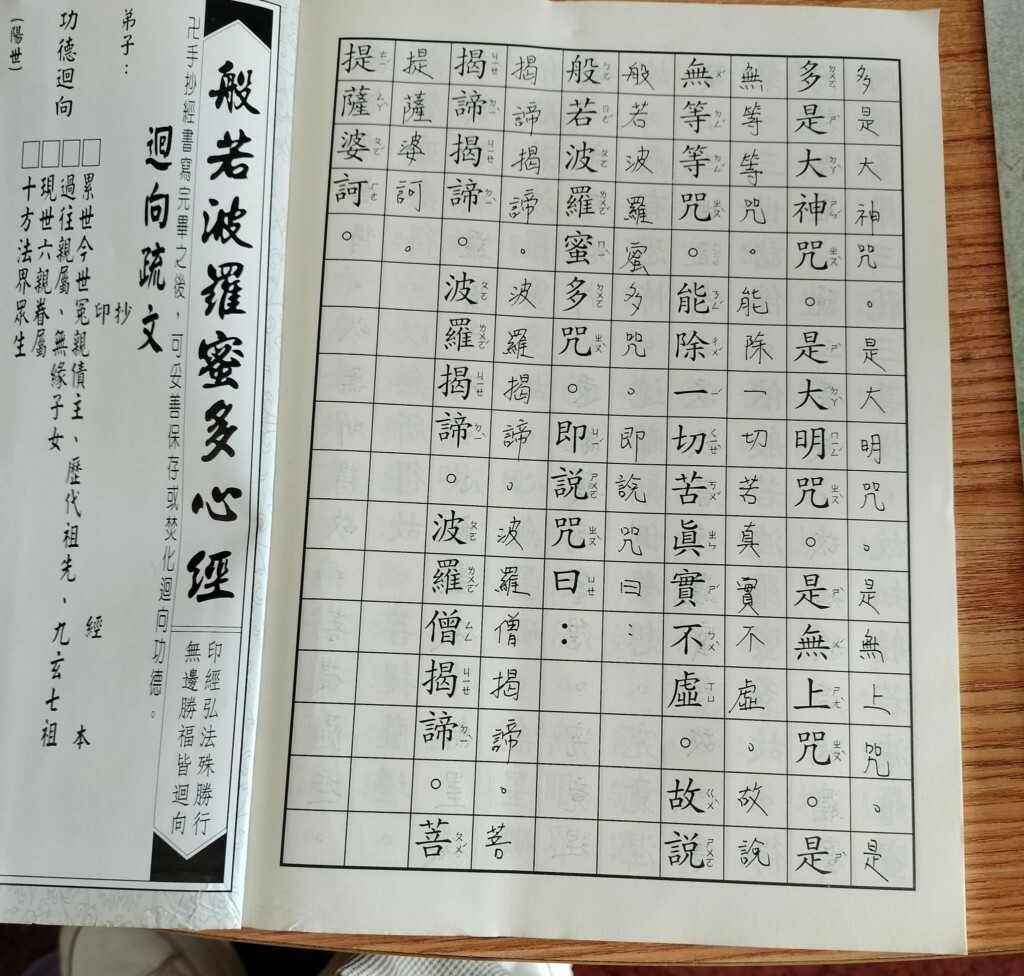 多是大神咒。是大明咒。是無上咒。是
多是大神咒。是大明咒。是無上咒。是
無等等咒。能除一切苦真實不虛。故說
無等等咒。能除一切苦眞實不虛。故說
般若波羅蜜多咒。即說咒曰：
般若波羅蜜多咒。即說咒曰：
揭諦揭諦。波羅揭諦。波羅僧揭諦。菩
揭諦揭諦。波羅揭諦。波羅僧揭諦。菩
提薩婆訶。
提薩婆訶。
般若波羅蜜多心經
印經弘法殊勝行
無邊勝福皆迴向
卍手抄經書寫完畢之後，可妥善保存或焚化迴向功德。
迴向疏文
弟子：
抄
印
經
本
功德迴向
□累世今世冤親債主、歷代祖先、九玄七祖
□過往親屬、無緣子女
□現世六親眷屬
□十方法界眾生
(陽世)